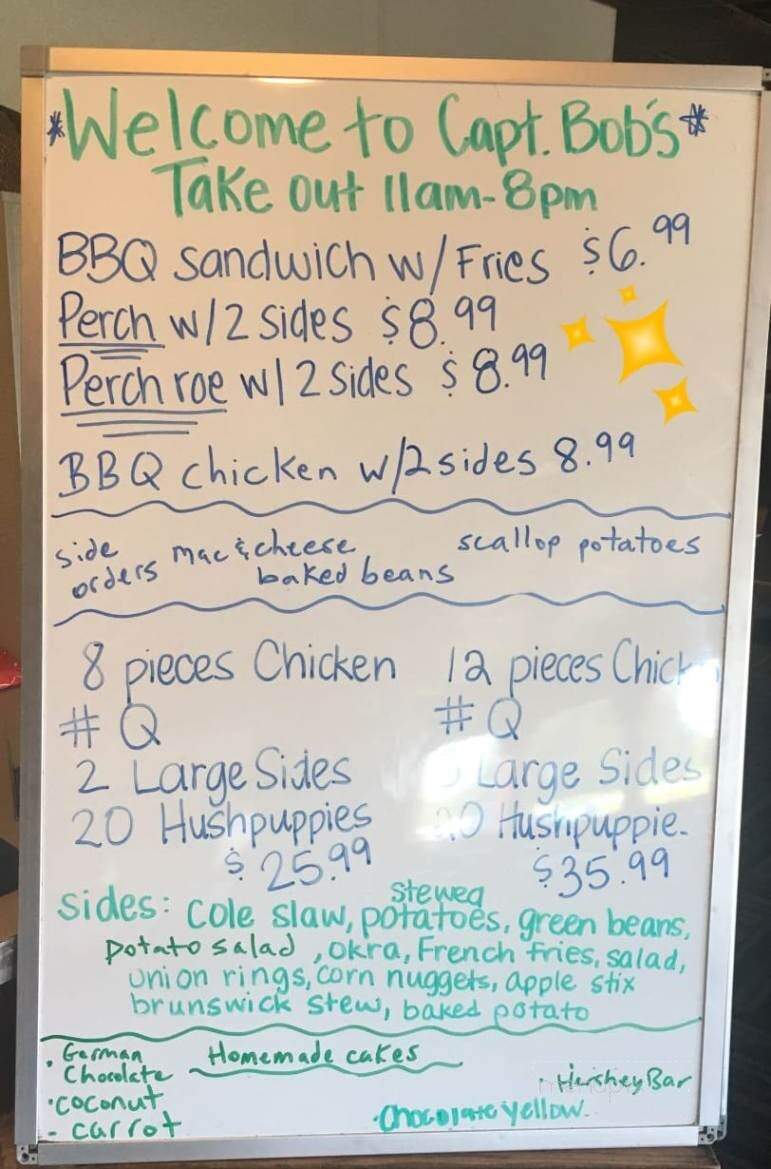 *Welcome to Capt. Bob's*
Take out 11am-8pm
BBQ sandwich w/Fries $6.99
Perch w/2 sides $8.99
Perch roe w/2 sides $8.99
BBQ chicken w/2 sides 8.99
side orders mac & cheese scallop potatoes
baked beans
8 pieces Chicken
# Q
2 Large Sides
20 Hushpuppies
$25.99
12 pieces Chick
# Q
Large Sides
Hushpuppie
$35.99
stewed
sides: cole slaw, potatoes, green beans,
potato salad, okra, French fries, salad,
onion rings, corn nuggets, apple stix
brunswick stew, baked potato
Homemade cakes
• German Chocolate
• coconut
- carrot
• Chocolate Yellow
• Hershey Bar